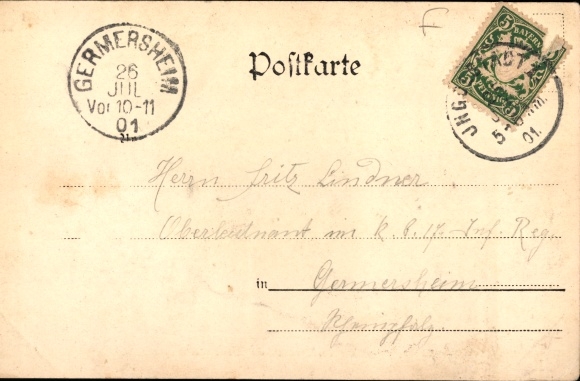 F
GERMERSHEIM
26
JUL
Vor 10-11
01
Postkarte
5 BAYERN
5 PFENNIG
ING
01.
Herrn Fritz Lindner
Oberleutnant im k. b. 17. Inf. Reg.
in Germersheim
Rheinpfalz